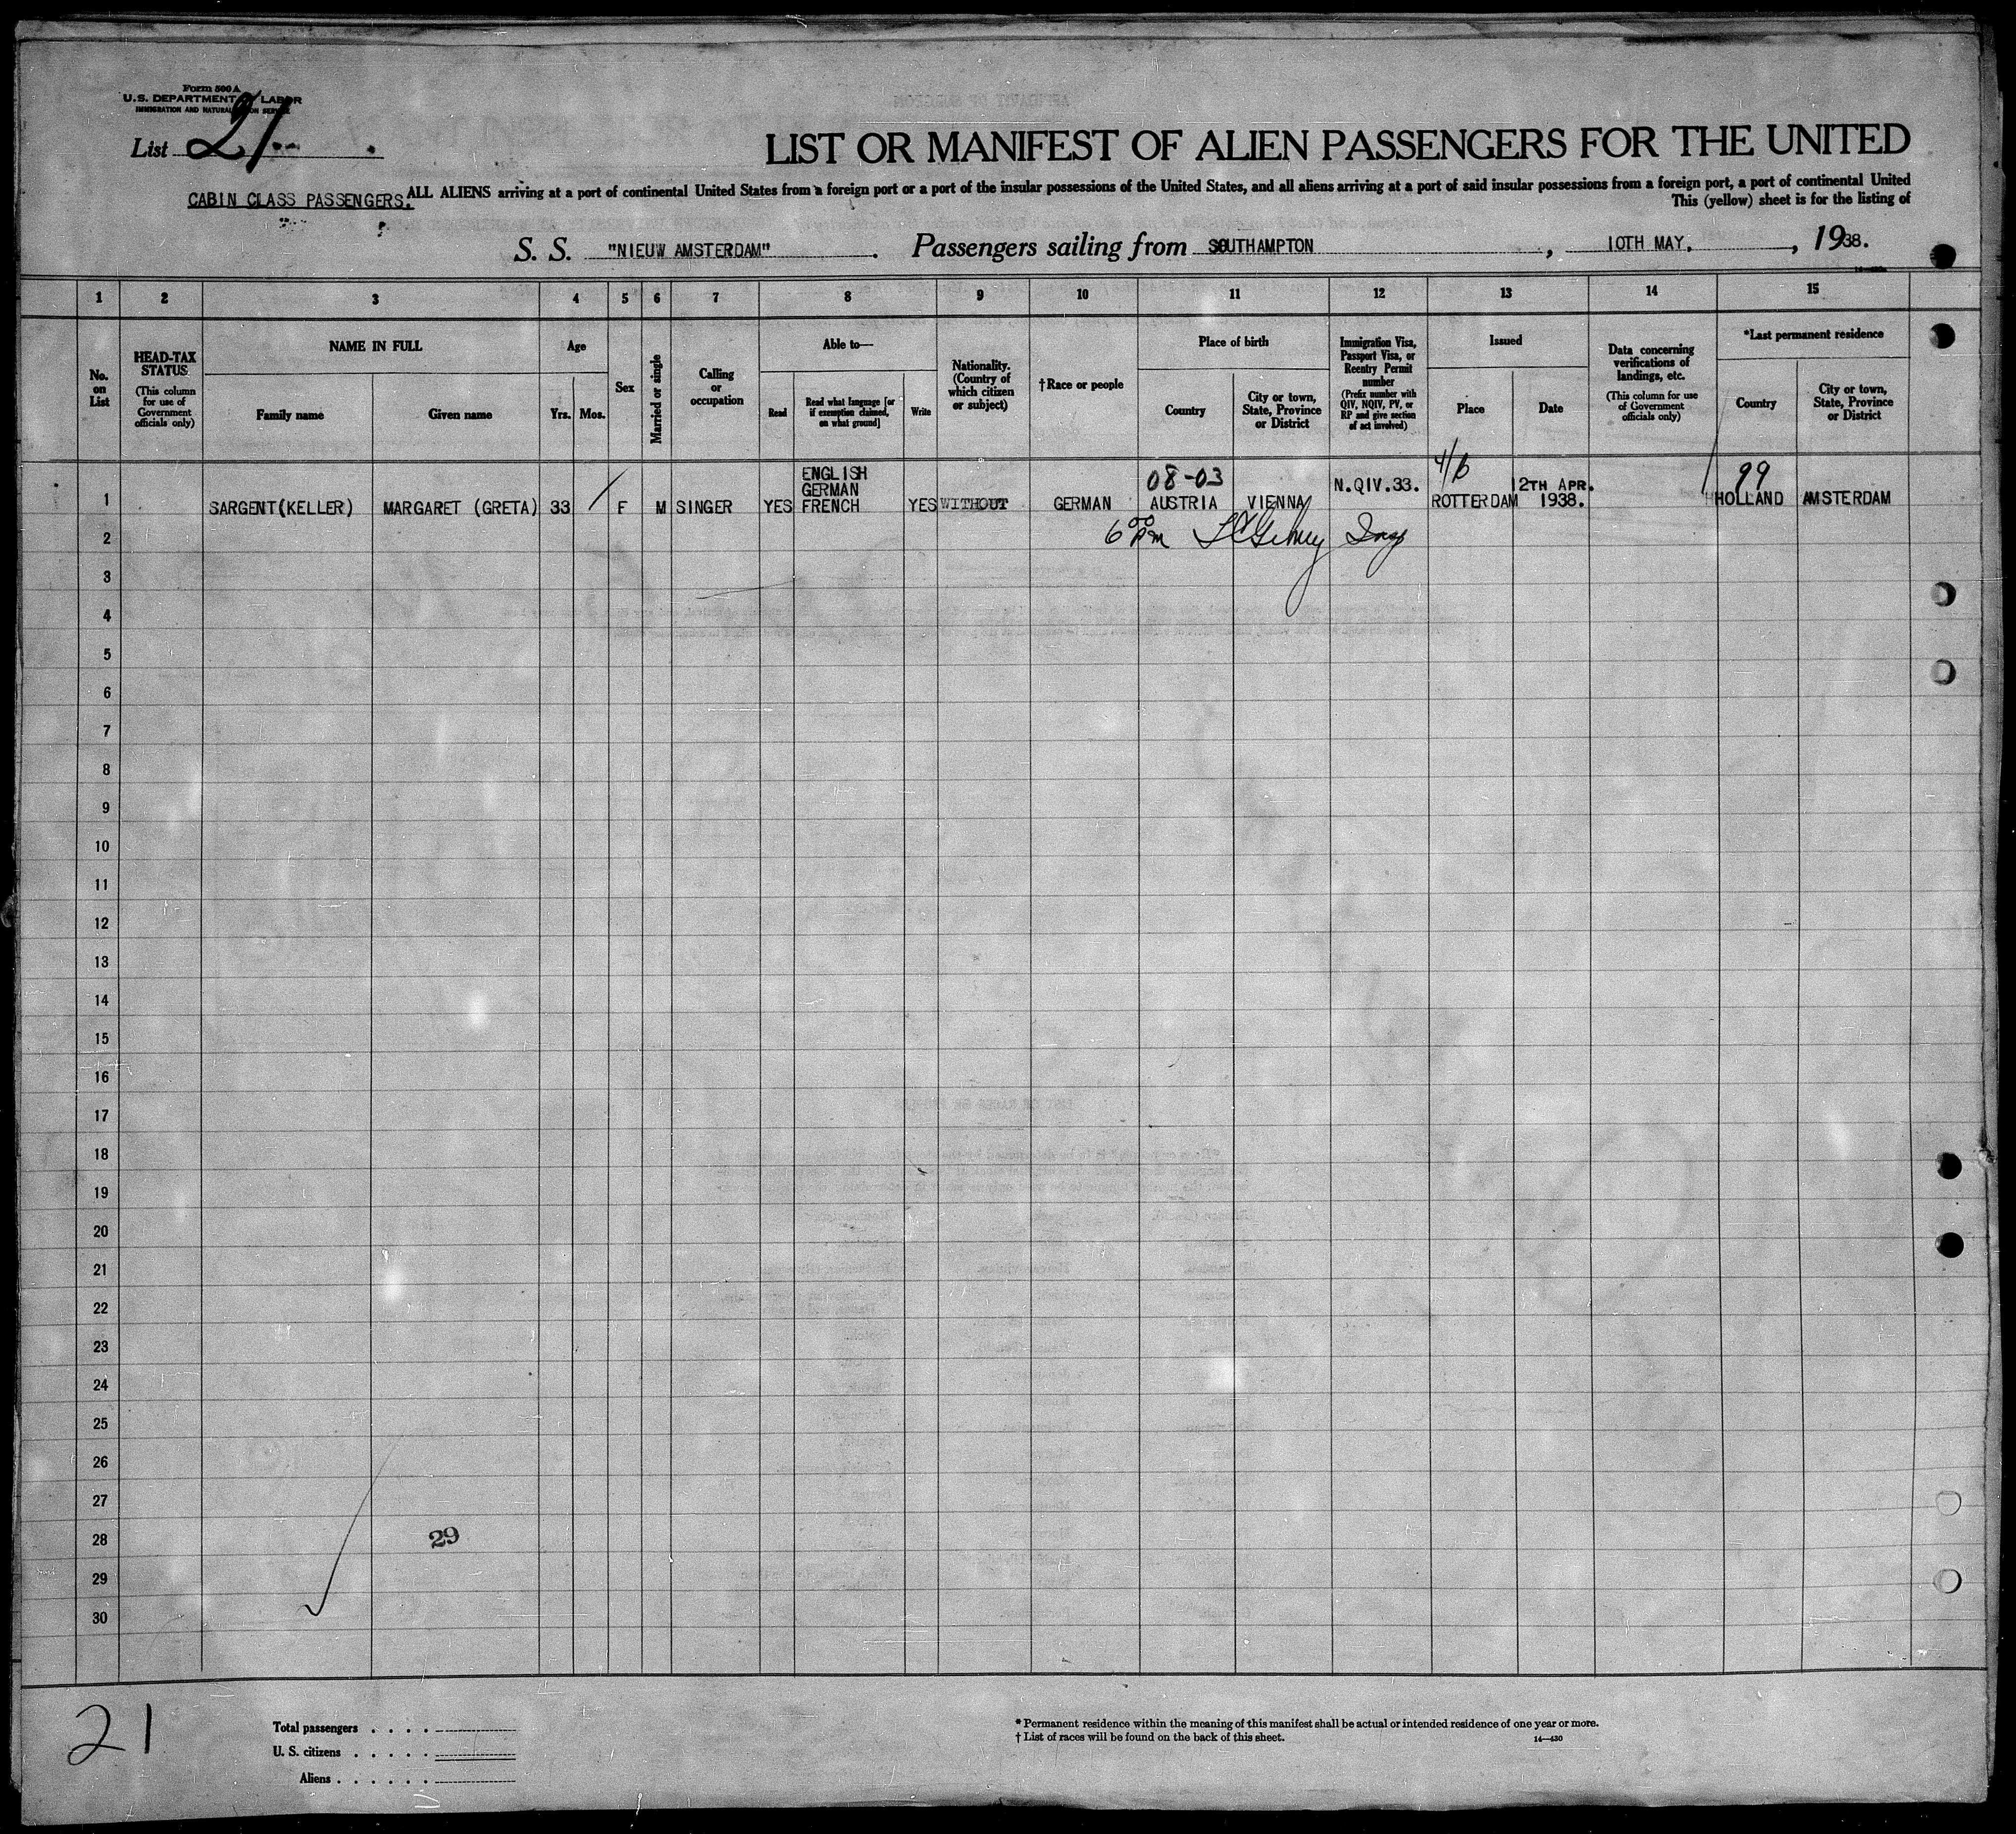 Form 500 A
U.S. DEPARTMENT OF LABOR
IMMIGRATION AND NATURALIZATION SERVICE
List 21
LIST OR MANIFEST OF ALIEN PASSENGERS FOR THE UNITED
CABIN CLASS PASSENGERS.
ALL ALIENS arriving at a port of continental United States from a foreign port or a port of the insular possessions of the United States, and all aliens arriving at a port of said insular possessions from a foreign port, a port of continental United
This (yellow) sheet is for the listing of
S. S. "NIEUW AMSTERDAM" . Passengers sailing from SOUTHAMPTON , 10TH MAY. , 1938.
1 2 3 4 5 6 7 8 9 10 11 12 13 14 15
No. on List
HEAD-TAX STATUS
(This column for use of Government officials only)
NAME IN FULL
Family name
Given name
Age
Yrs.
Mos.
Sex
Married or single
Calling or occupation
Able to—
Read
Read what language [or if exemption claimed, on what ground]
Write
Nationality. (Country of which citizen or subject)
†Race or people
Place of birth
Country
City or town, State, Province or District
Immigration Visa, Passport Visa, or Reentry Permit number
(Prefix number with QIV, NQIV, PV, or RP and give section of act involved)
Issued
Place
Date
Data concerning verifications of landings, etc.
(This column for use of Government officials only)
*Last permanent residence
Country
City or town, State, Province or District
4/b
08-03
99
1 SARGENT(KELLER) MARGARET (GRETA) 33 F M SINGER YES ENGLISH GERMAN FRENCH YES WITHOUT GERMAN AUSTRIA VIENNA N.QIV.33. ROTTERDAM 12TH APR. 1938. HOLLAND AMSTERDAM
2 6 00 pm
3
4
5
6
7
8
9
10
11
12
13
14
15
16
17
18
19
20
21
22
23
24
25
26
27
28 29
29
30
21
Total passengers . . . .
U. S. citizens . . . . .
Aliens . . . . . .
* Permanent residence within the meaning of this manifest shall be actual or intended residence of one year or more.
† List of races will be found on the back of this sheet.
14—430